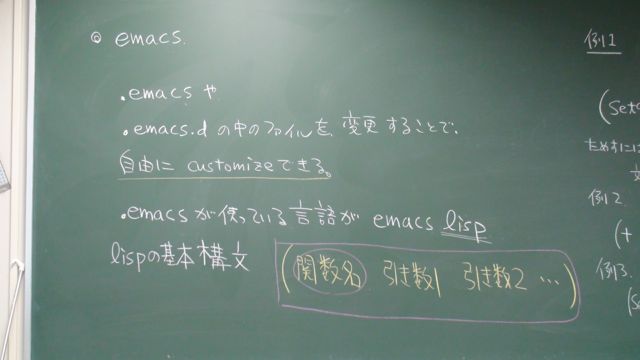 ◎ emacs.
.emacs や
.emacs.d の中のファイルを変更することで、
自由に customizeできる。
.emacsが使っている言語が emacs lisp
lispの基本構文 (関数名 引き数1 引き数2 …)
例1
(set
ためすには
例2
(+
例3
(s